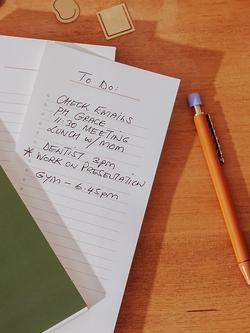 To Do:
CHECK EMAILS
PM GRACE
11:30 MEETING
LUNCH W/ MOM
DENTIST 3pm
* WORK ON PRESENTATION
GYM - 6.45pm